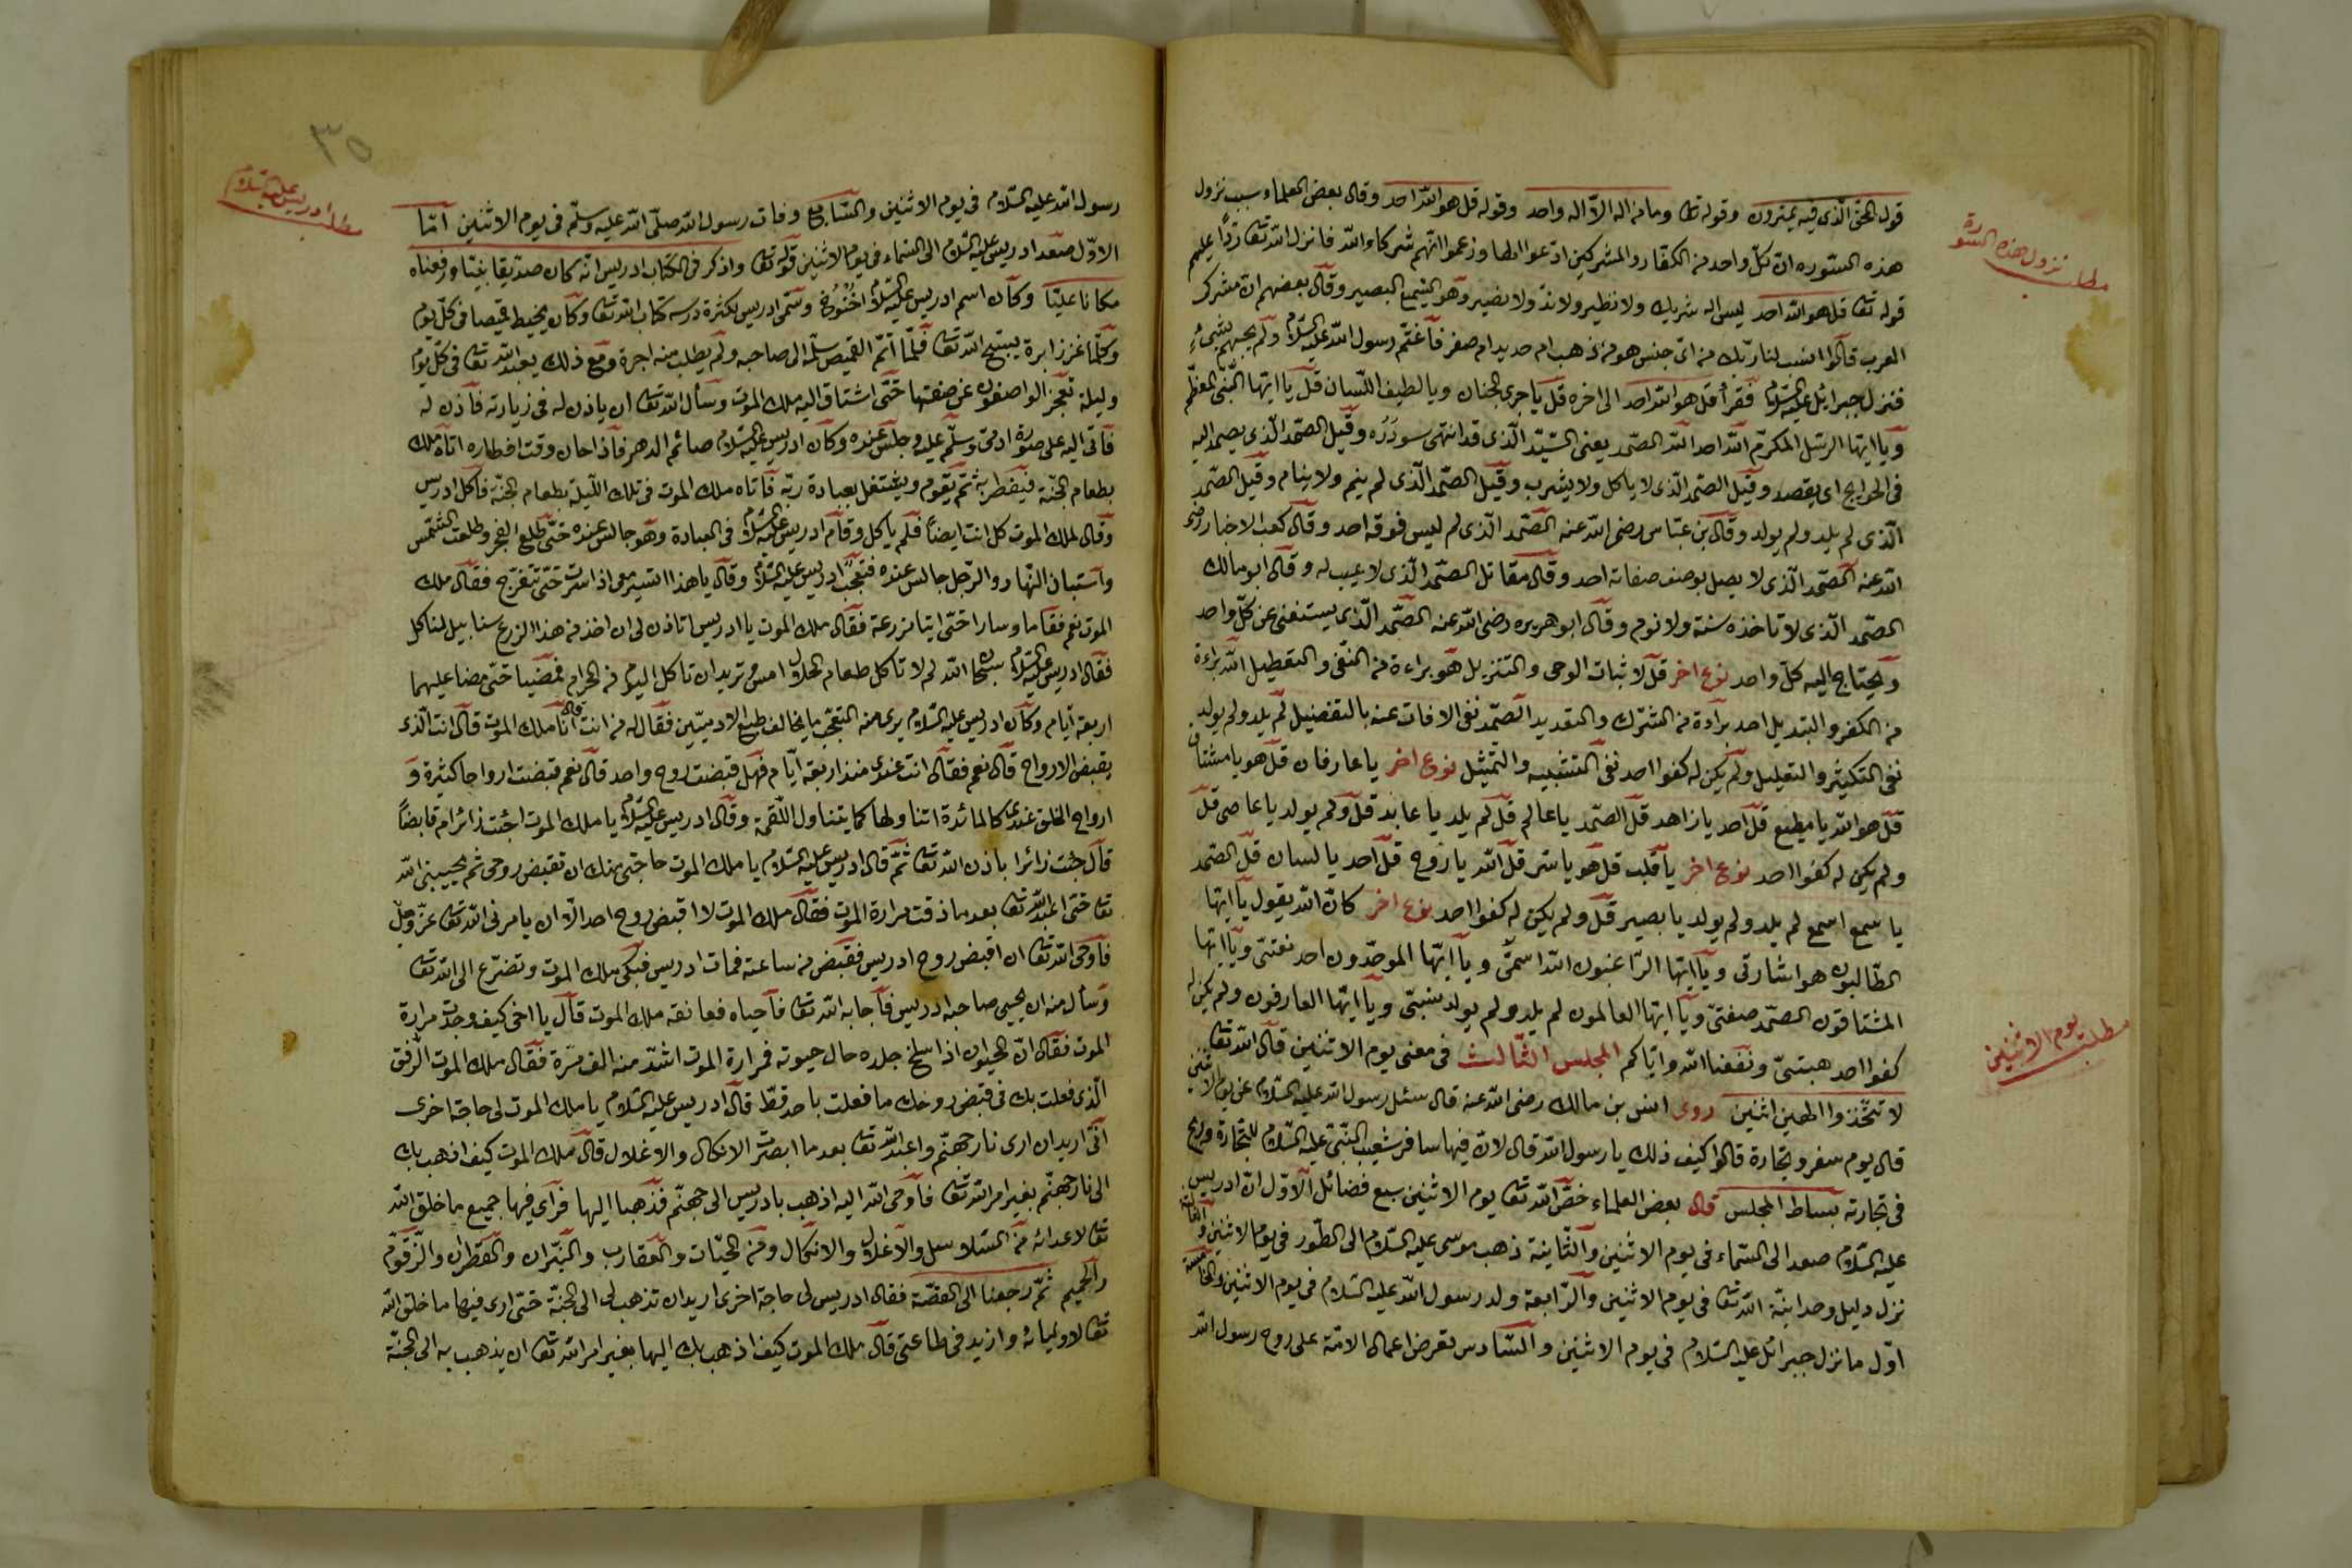 قول الحق الّذى فيه يمترون وقوله تعا وما من اله الاّ اله واحد وقوله قل هو اللّه احد وقال بعض العلماء سبب نزول
هذه السّوره ان كلّ واحد من الكفّار والمشركين ادّعوا الها وزعموا انّهم شركاء اللّه فانزل اللّه تعا ردّاً عليهم
قوله تعا قل هو اللّه احد ليس له شريك ولا نظير ولا ندّ ولا نصير وهو السّميع البصير وقال بعضهم ان مشرك
العرب قالوا انسب لنا ربّك من اىّ جنس هو من ذهب ام حديد ام صفر فاغتمّ رسول اللّه عليه السّلام ولم يجبهم بشئ
فنزل جبرائل عليه السّلام فقرأ قل هو اللّه احد الى اخره قل يا جرى الجنان ويا لطيف اللّسان قل يا ايّها النّبىّ المعظّم
ويا ايّها الرّسل المكرّم اللّه احد اللّه الصّمد يعنى السّيّد الّذى قد انتهى سودَدُه وقيل الصّمد الّذى يصمد اليه
فى الحوايج اى يقصد وقيل الصّمد الّذى لا ياكل ولا يشرب وقيل الصّمد الّذى لم ينم ولا ينام وقيل الصّمد
الّذى لم يلد ولم يولد وقال بن عبّاس رضى اللّه عنه الصّمد الّذى لم ليس فوقه احد وقال كعب الاخبار رضى
اللّه عنه الصّمد الّذى لا يصل بوصف صفاته احد وقال مقاتل الصّمد الّذى لا عيب له وقال ابو مالك
الصّمد الّذى لا تاخذه سنة ولا نوم وقال ابو هريره رضى اللّه عنه الصّمد الّذى يستغنى عن كلّ واحد
ويحتاج اليه كلّ واحد نوع اخر قل لاثبات الوحى والتنزيل هو براءة من النّفى والتعطيل اللّه براءة
من الكفر والتبديل احد براءة من الشّرك والتعديد الصّمد نفى الافات عنه بالتفضيل لم يلد ولم يولد
نفى التكثير والتعليل ولم يكن له كفوا احد نفى التشبيه والتّمثيل نوع اخر يا عارفان قل هو يا مشتاق
قل هو اللّه يا مطيع قل احد يا زاهد قل الصّمد يا عالم قل لم يلد يا عابد قل ولم يولد يا عاصى قل
ولم يكن له كفوا احد نوع اخر يا قلب قل هو يا سرّ قل اللّه يا روح قل احد يا لسان قل الصّمد
يا سمع اسمع لم يلد ولم يولد يا بصير قل ولم يكن له كفوا احد نوع اخر كانّ اللّه يقول يا ايّها
الطّالبون هو اشارتى ويا ايّها الرّاغبون اللّه اسمىّ ويا ايّها الموحّدون احد نعتىّ ويا ايّها
المشتاقون الصّمد صفتىّ ويا ايّها العالمون لم يلد ولم يولد نسبتىّ ويا ايّها العارفون ولم يكن له
كفوا احد هيبتىّ ونفعنا اللّه وايّاكم المجلس الثّالث فى معنى يوم الاثنين قال اللّه تعا
لا تتّخذوا الهين اثنين روى انس بن مالك رضى اللّه عنه قال سئل رسول اللّه عليه السّلام عن يوم الاثنين
قال يوم سفر وتجارة قالوا كيف ذلك يا رسول اللّه قال لانّ فيها سافر شعيب النّبىّ عليه السّلام للتجارة فربح
فى تجارته بساط المجلس قال بعض العلماء خصّ اللّه تعا يوم الاثنين سبع فضائل الاوّل انّ ادريس
عليه السّلام صعد الى السّماء فى يوم الاثنين والثّانية ذهب موسى عليه السّلام الى الطّور فى يوم الاثنين والثالثة
نزل دليل وحدانيّة اللّه تعا فى يوم الاثنين والرّابعة ولد رسول اللّه عليه السّلام فى يوم الاثنين والخامسة
اوّل ما نزل جبرائل عليه السّلام فى يوم الاثنين والسّادس تعرض اعمال الامّة على روح رسول اللّه
مطلب نزول هذه السّورة
مطلب يوم الاثنين
٣٥
رسول اللّه عليه السّلام فى يوم الاثنين والسّابع وفات رسول اللّه صلّى اللّه عليه وسلّم فى يوم الاثنين امّا
الاوّل صعد ادريس عليه السّلام الى السّماء فى يوم الاثنين قوله تعا واذكر فى الكتاب ادريس انّه كان صديقا نبيّا ورفعناه
مكانا عليّا وكان اسم ادريس عليه السّلام اخنوخ وسمّى ادريس لكثرة درسه كتاب اللّه تعا وكان يخيط قميصا فى كلّ يوم
وكلّما غرز ابرة يسبّح اللّه تعا فلمّا اتمّ القميص سلّمه الى صاحبه ولم يطلب منه اجرة ومع ذلك يعبد اللّه تعا فى كلّ يوم
وليلة تعجز الواصفون عن صفتها حتّى اشتاق اليه ملك الموت وسأل اللّه تعا ان ياذن له فى زيارته فاذن له
فاتى اليه على صورة ادمى وسلّم عليه وجلس عنده وكان ادريس عليه السّلام صائم الدهر فاذا حان وقت افطاره اتاه ملك
بطعام الجنّة فيفطر به ثمّ يقوم ويشتغل بعبادة ربّه فاتاه ملك الموت فى تلك اللّيلة بطعام الجنّة فاكل ادريس
وقال لملك الموت كل انت ايضاً فلم ياكل وقام ادريس عليه السّلام فى العبادة وهو جالس عنده حتّى طلع الفجر وطلعت الشّمس
واستبان النّهار والرّجل جالس عنده فتعجّب ادريس عليه السّلام وقال يا هذا اتسير معى اذا سرت حتّى تتفرّج فقال ملك
الموت نعم فقاما وسارا حتّى اتيا مزرعة فقال ملك الموت يا ادريس اتاذن لى ان اخذ من هذا الزرع سنابيل لناكل
فقال ادريس عليه السّلام سبحان اللّه لم لا تاكل طعام الحلال امس وتريد ان تاكل اليوم من الحرام فمضيا حتّى مضا عليهما
اربعة ايّام وكان ادريس عليه السّلام يرى منه التعجّب ما يخالف طبع الادميّين فقال له من انت قال انا ملك الموت قال انت الّذى
يقبض الارواح قال نعم فقال انت عندى منذ اربعة ايّام فهل قبضت روح واحد قال نعم قبضت ارواحا كثيرة و
ارواح الخلق عندى كالمائدة اتناولها كما يتناول اللّقمة وقال ادريس عليه السّلام يا ملك الموت اجئت زائرا ام قابضاً
قال جئت زائرا باذن اللّه تعا ثمّ قال ادريس عليه السّلام يا ملك الموت حاجتى منك ان تقبض روحى ثم يحيينى اللّه
تعا حتى اعبد اللّه تعا بعد ما ذقت مرارة الموت فقال ملك الموت لا اقبض روح احد الاّ ان يامرنى اللّه تعا عزّ وجلّ
فاوحى اللّه تعا ان اقبض روح ادريس فقبض من ساعته فمات ادريس فبكى ملك الموت وتضرّع الى اللّه تعا
وسأل منه ان يحيى صاحبه ادريس فاجابه اللّه تعا فاحياه فعانقه ملك الموت قال يا اخى كيف وجدت مرارة
الموت فقال انّ الحيوان اذا سلخ جلده حال حيوته فمرارة الموت اشدّ منه الف مرّة فقال ملك الموت الرّفق
الّذى فعلت بك فى قبض روحك ما فعلت باحد قطّ قال ادريس عليه السّلام يا ملك الموت لى حاجة اخرى
انّى اريد ان ارى نار جهنّم واعبد اللّه تعا بعد ما ابصرت الانكال والاغلال قال ملك الموت كيف اذهب بك
الى نار جهنّم بغير امر اللّه تعا فاوحى اللّه اليه اذهب بادريس الى جهنّم فذهبا اليها فرأى فيها جميع ما خلق اللّه
تعا لاعدائه من السّلاسل والاغلال والانكال ومن الحيّات والعقارب والنّيران والقطران والزّقّوم
والحميم ثمّ رجعنا الى القصّة فقال ادريس لى حاجة اخرى اريد ان تذهب لى الى الجنّة حتى ارى فيها ما خلق اللّه
تعا لاوليائه وازيد فى طاعتى قال ملك الموت كيف اذهب بك اليها بغير امر اللّه تعا ان يذهب به الى الجنّة
مطلب ادريس عليه السّلام